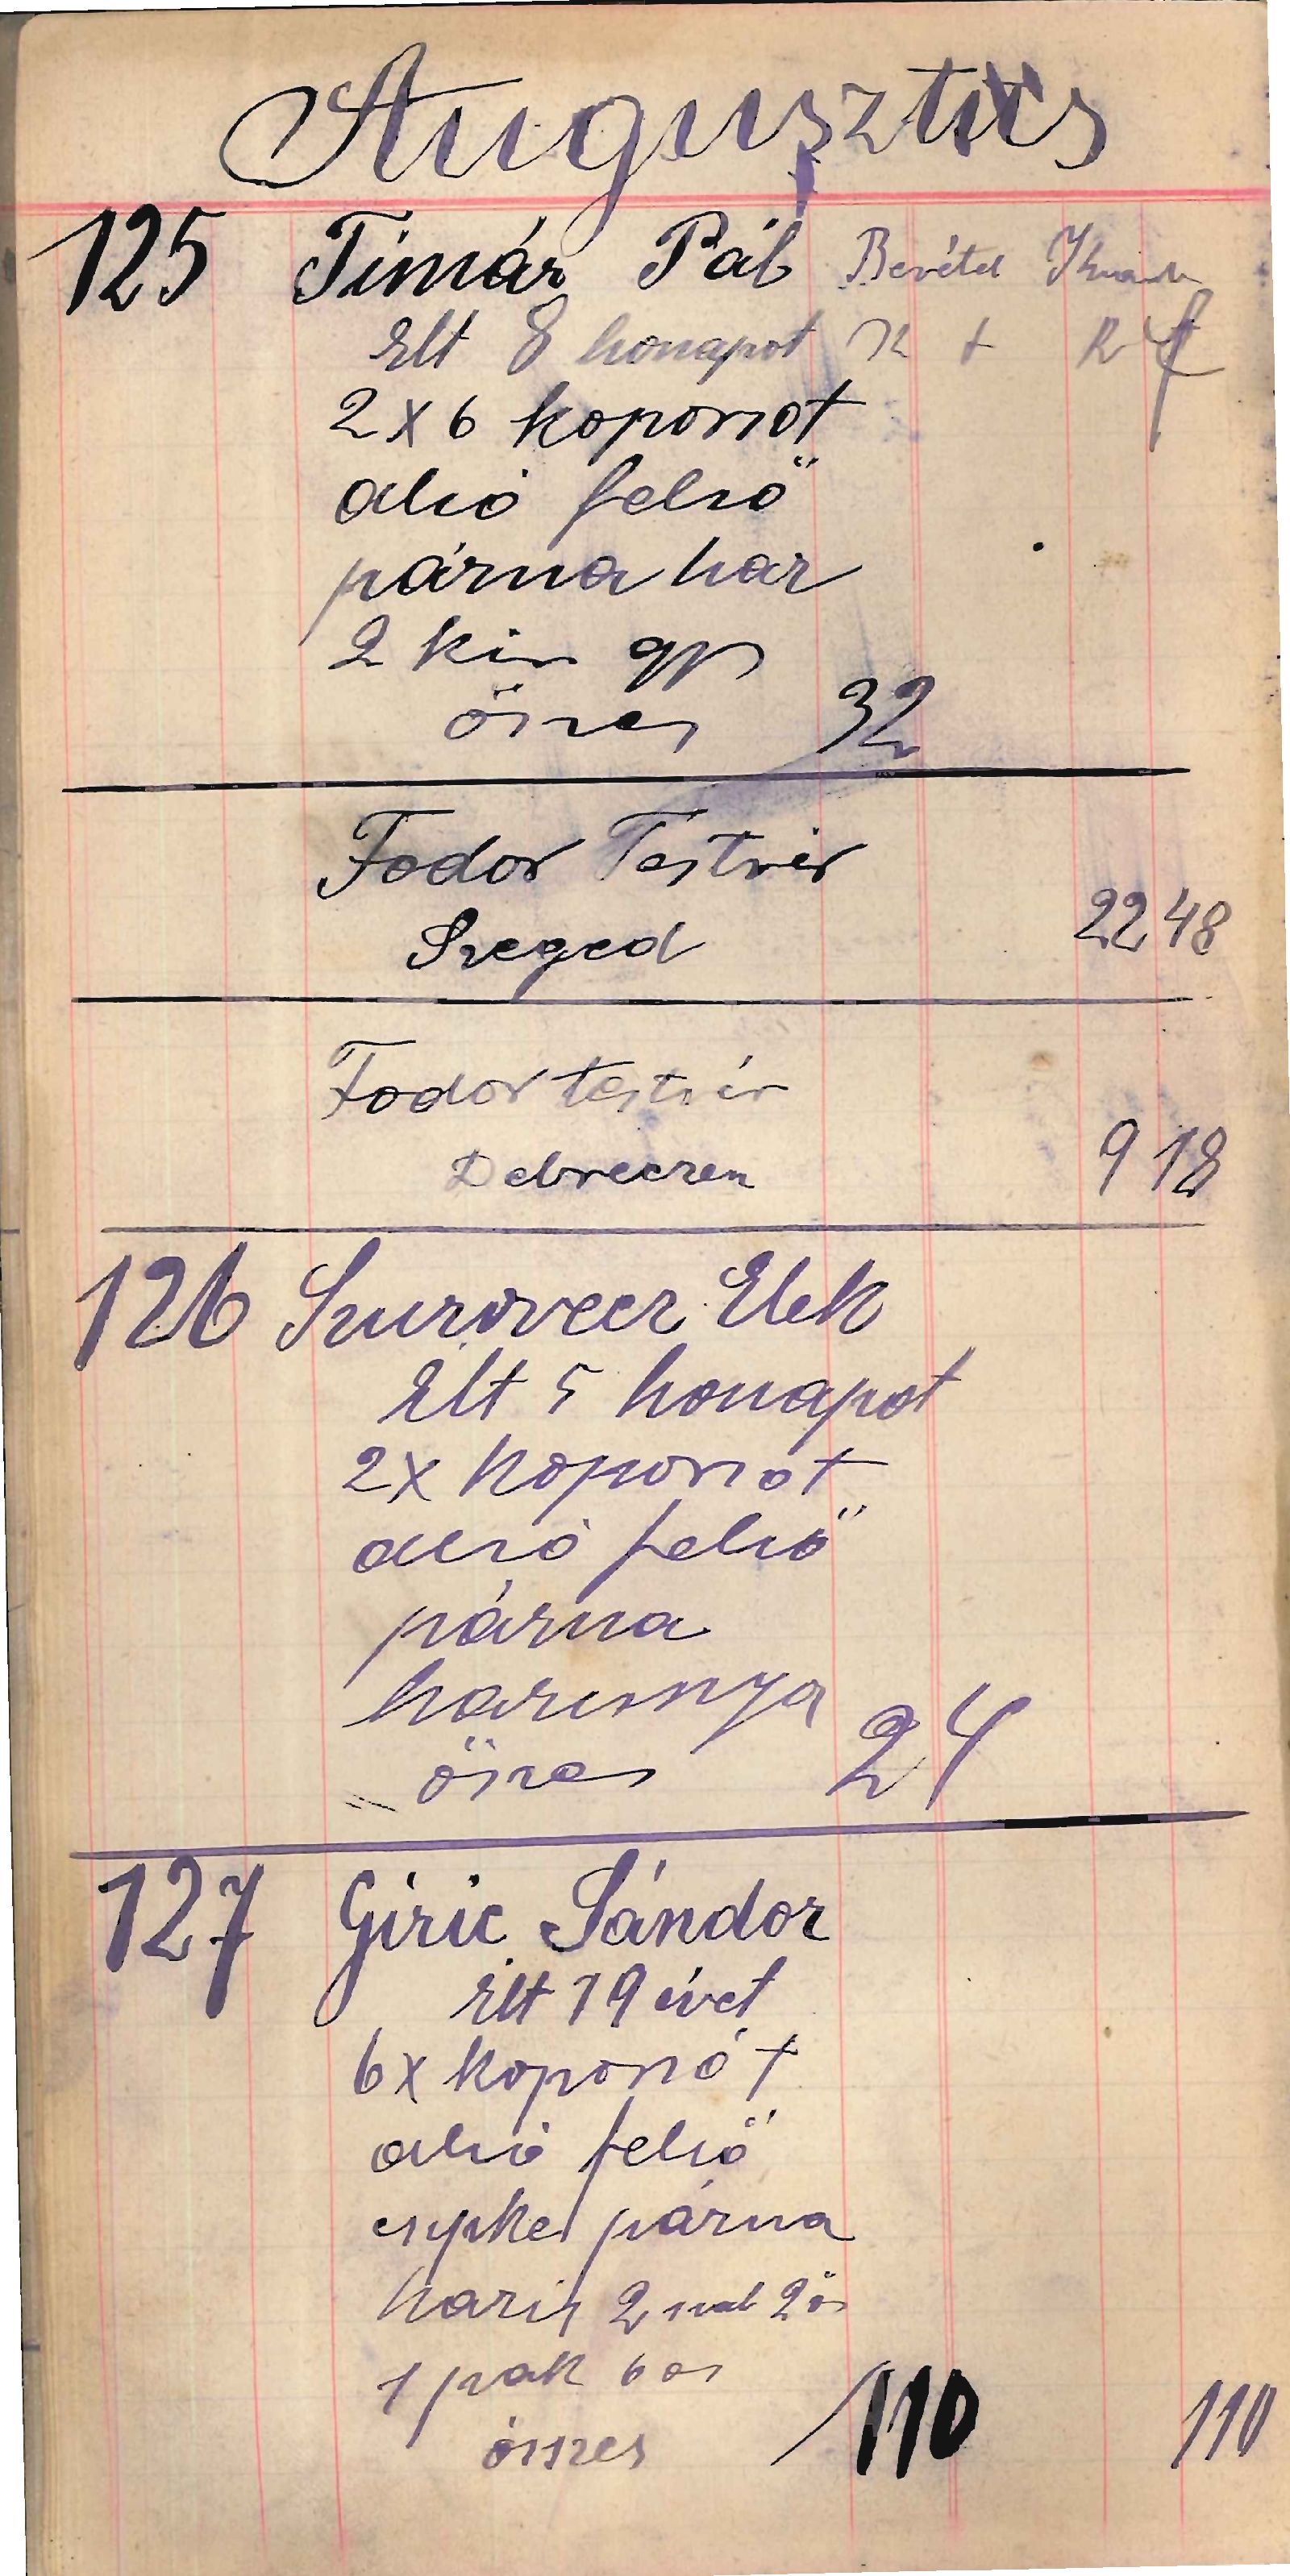 Augusztus
125 Timár Pál Bevétel Kiadás
Elt 8 honapot K f K f
2 x 6 koporsot
alsó felső
párna har
2 kis gy
összes 32
Fodor Testvér
Szeged 22 48
Fodor testvér
Debreczen 9 18
126 Szurovecz Elek
Elt 5 honapot
2x koporsot
alsó felső
párna
harisnya
összes 24
127 Giric Sándor
Elt 19 évet
6x koporsót
alsó felső
csipkés párna
haris 2 szál 2 ös
1 pak 6 os
összes 110 110